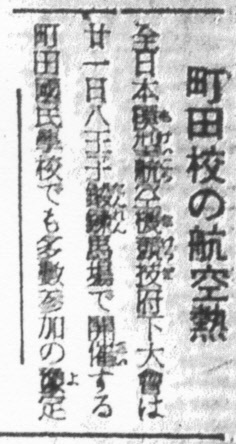 町田校の航空熱
全日本模型航空機競技府下大會は
廿一日八王子鍛錬馬場で開催する
町田國民學校でも多數參加の豫定